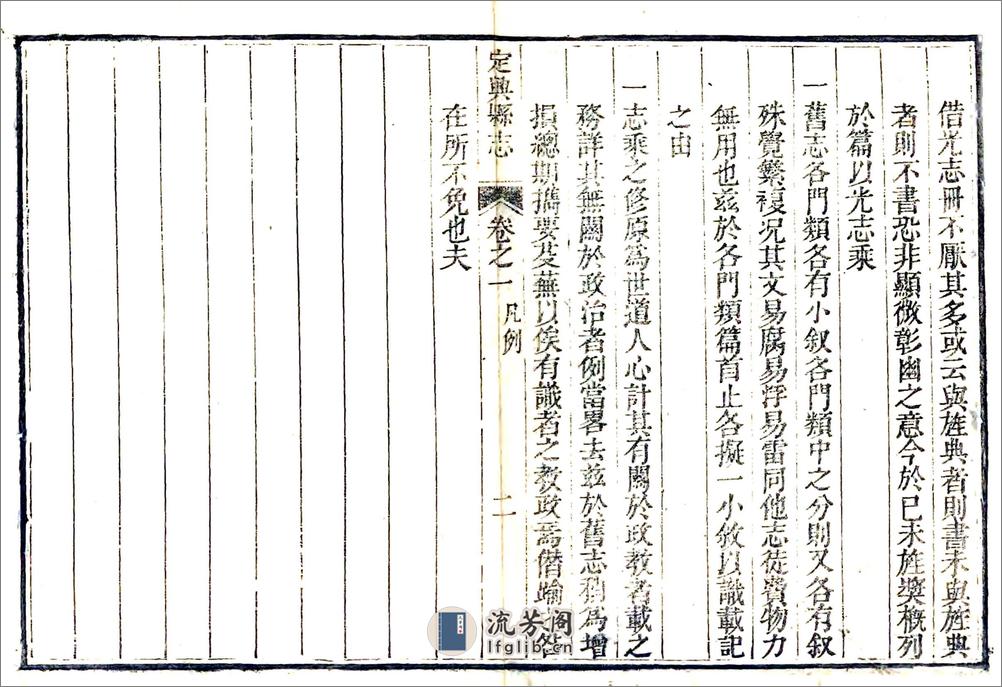 借光志冊不厭其多或云與旌典者則書未與旌典
者則不書恐非顯微彰幽之意今於已未旌獎槪列
於篇以光志乘
一舊志各門類各有小叙各門類中之分則又各有叙
殊覺繁複況其文易腐易浮易雷同他志徒費物力
無用也兹於各門類篇首止各擬一小敘以識載記
之由
一志乘之修原爲世道人心計其有關於政教者載之
務詳其無關於政治者例當畧去兹於舊志稍爲增
損總期擕要芟蕪以俟有識者之敎政焉僭踰
在所不免也夫
定興縣志 卷之一 凡例 二
流芳阁
lfglib.cn